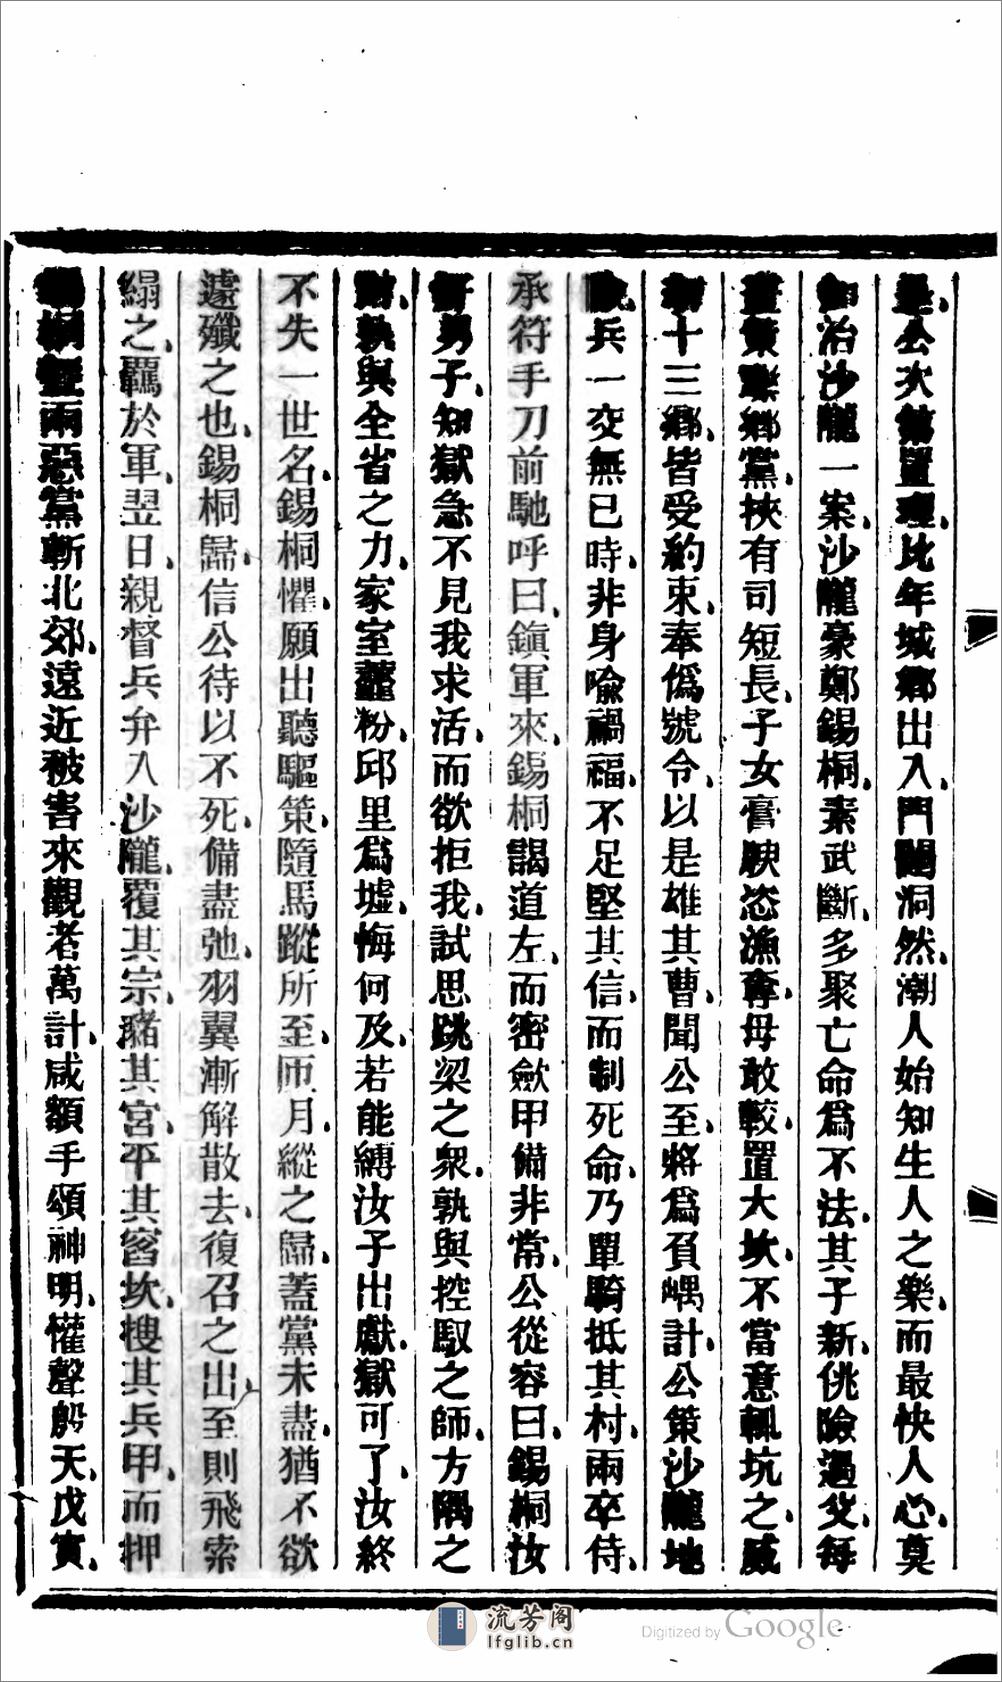 公次第置理比年城鄉出入門闥洞然潮人始知生人之樂而最快人心莫
如治沙隴一案沙隴豪鄭錫桐素武斷多聚亡命為不法其子新佻險過父每
畫策聯鄉黨挾有司短長子女膏腴恣漁奪毋敢較置大坎不當意輒坑之威
十三鄉皆受約束奉僞號令以是雄其曹聞公至將為負嵎計公策沙隴地
兵一交無已時非身喻禍福不足堅其信而制死命乃單騎抵其村兩卒侍
承符手刀前馳呼曰鎭軍來錫桐謁道左而密歛甲備非常公從容曰錫桐汝
好男子知獄急不見我求活而欲拒我試思跳梁之衆孰與控馭之師方隅之
財孰與全省之力家室虀粉邱里為墟悔何及若能縛汝子出獻獄可了汝終
不失一世名錫桐懼願出聽驅策隨馬蹤所至匝月縱之歸蓋黨未盡猶不欲
遽殲之也錫桐歸信公待以不死備盡弛羽翼漸解散去復召之出至則飛索
縋之羈於軍翌日親督兵弁入沙隴覆其宗豬其宮平其窖坎搜其兵甲而押
錫桐暨兩惡黨斬北郊遠近被害來觀者萬計咸額手頌神明懽聲殷天戊寅
流芳阁
lfglib.cn
Digitized by Google